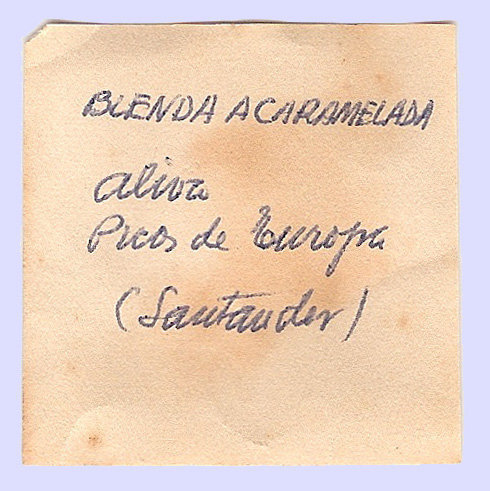 BLENDA ACARAMELADA
aliva
Picos de Europa
(Santander)